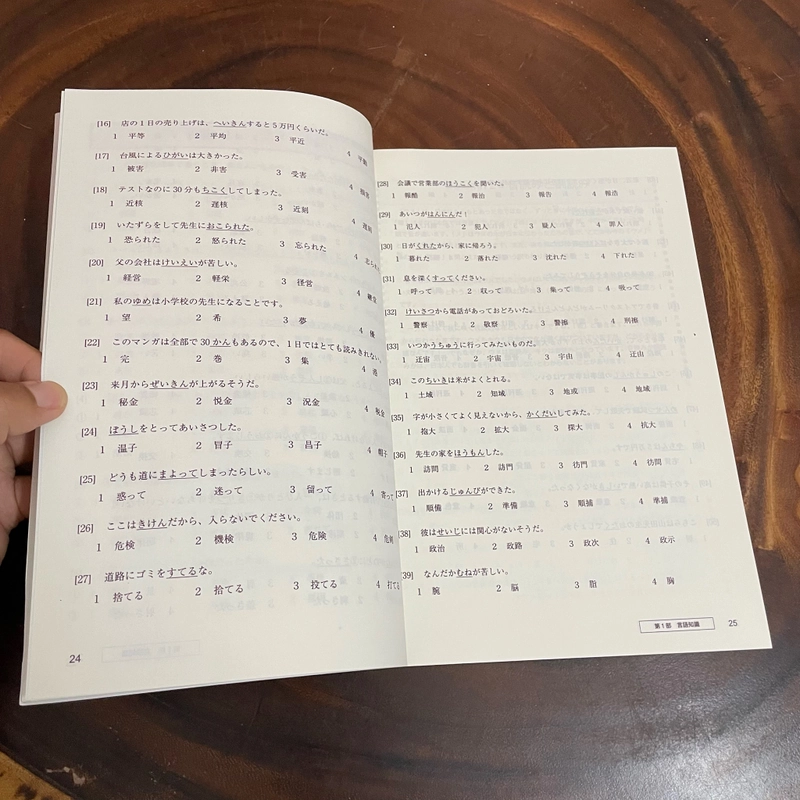 [16] 店の1日の売り上げは、へいきんすると5万円くらいだ。
1 平等 2 平均 3 平近 4
[17] 台風によるひがいは大きかった。
1 被害 2 非害 3 受害 4
[18] テストなのに30分もちこくしてしまった。
1 近核 2 遅核 3 近刻 4 遅刻
[19] いたずらをして先生におこられた。
1 恐られた 2 怒られた 3 忘られた 4
[20] 父の会社はけいえいが苦しい。
1 経営 2 軽栄 3 径営 4
[21] 私のゆめは小学校の先生になることです。
1 望 2 希 3 夢 4 優
[22] このマンガは全部で30かんもあるので、1日ではとても読みきれない。
1 完 2 巻 3 集 4
[23] 来月からぜいきんが上がるそうだ。
1 秘金 2 悦金 3 況金 4 税金
[24] ぼうしをとってあいさつした。
1 温子 2 冒子 3 昌子 4 帽子
[25] どうも道にまよってしまったらしい。
1 惑って 2 迷って 3 留って 4 寄って
[26] ここはきけんだから、入らないでください。
1 危検 2 機検 3 危険 4
[27] 道路にゴミをすてるな。
1 捨てる 2 拾てる 3 投てる 4 打てる
24
[28] 会議で営業部のほうこくを聞いた。
1 報酷 2 報治 3 報告 4 報浩
[29] あいつがはんにんだ!
1 氾人 2 犯人 3 疑人 4 罪人
[30] 日がくれたから、家に帰ろう。
1 暮れた 2 落れた 3 沈れた 4 下れた
[31] 息を深くすってください。
1 呼って 2 収って 3 集って 4 吸って
[32] けいさつから電話があっておどろいた。
1 警察 2 敬察 3 警擦 4 刑擦
[33] いつかうちゅうに行ってみたいものだ。
1 迂宙 2 宇宙 3 宇由 4 迂由
[34] このちいきは米がよくとれる。
1 土域 2 知域 3 地或 4 地域
[35] 字が小さくてよく見えないから、かくだいしてみた。
1 抱大 2 拡大 3 探大 4 抗大
[36] 先生の家をほうもんした。
1 訪問 2 訪門 3 彷門 4 彷問
[37] 出かけるじゅんびができた。
1 順備 2 準備 3 順捕 4 準捕
[38] 彼はせいじには関心がないそうだ。
1 政治 2 政路 3 政次 4 政示
[39] なんだかむねが苦しい。
1 腕 2 脳 3 脂 4 胸
第1部 言語知識 25